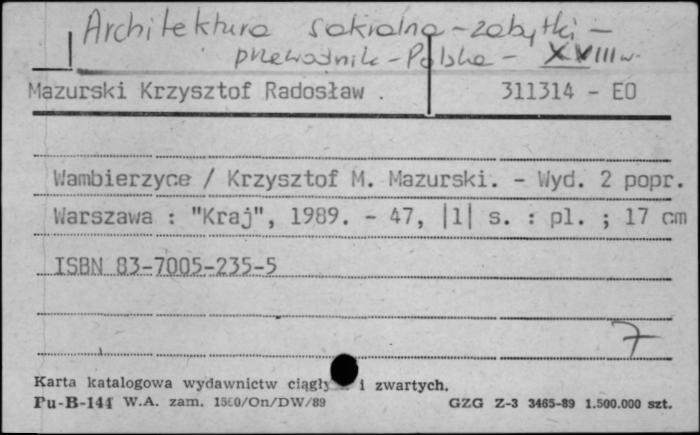 Architektura sakralna - zabytki -
przewodnik - Polska - XVIII w.
Mazurski Krzysztof Radosław . 311314 - EO
Wambierzyce / Krzysztof M. Mazurski. - Wyd. 2 popr.
Warszawa : "Kraj", 1989. - 47, |1| s. : pl. ; 17 cm
ISBN 83-7005-235-5
7
Karta katalogowa wydawnictw i zwartych.
Pu-B-144 W.A. zam. /On/DW/89 GZG Z-3 3465-89 1.500.000 szt.